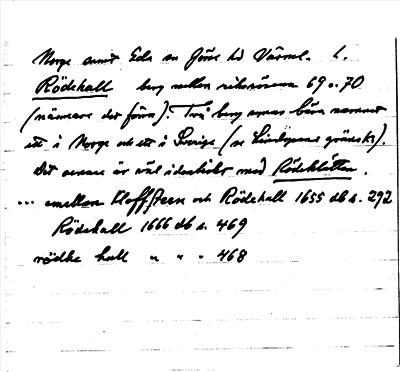 Norge samt Eda sn Jösse hd Värml. l.
Rödehall berg mellan riksrösena 69 o. 70
(närmare det förra). Två berg synas bära namnet
ett i Norge och ett i Sverige (se gränsk.).
Det senare är väl identiskt med Rödeklätten.
... emellan Kloffsteen och Rödehall 1655 db s. 292
Rödehall 1666 db s. 469
rödhe hall " " " 468